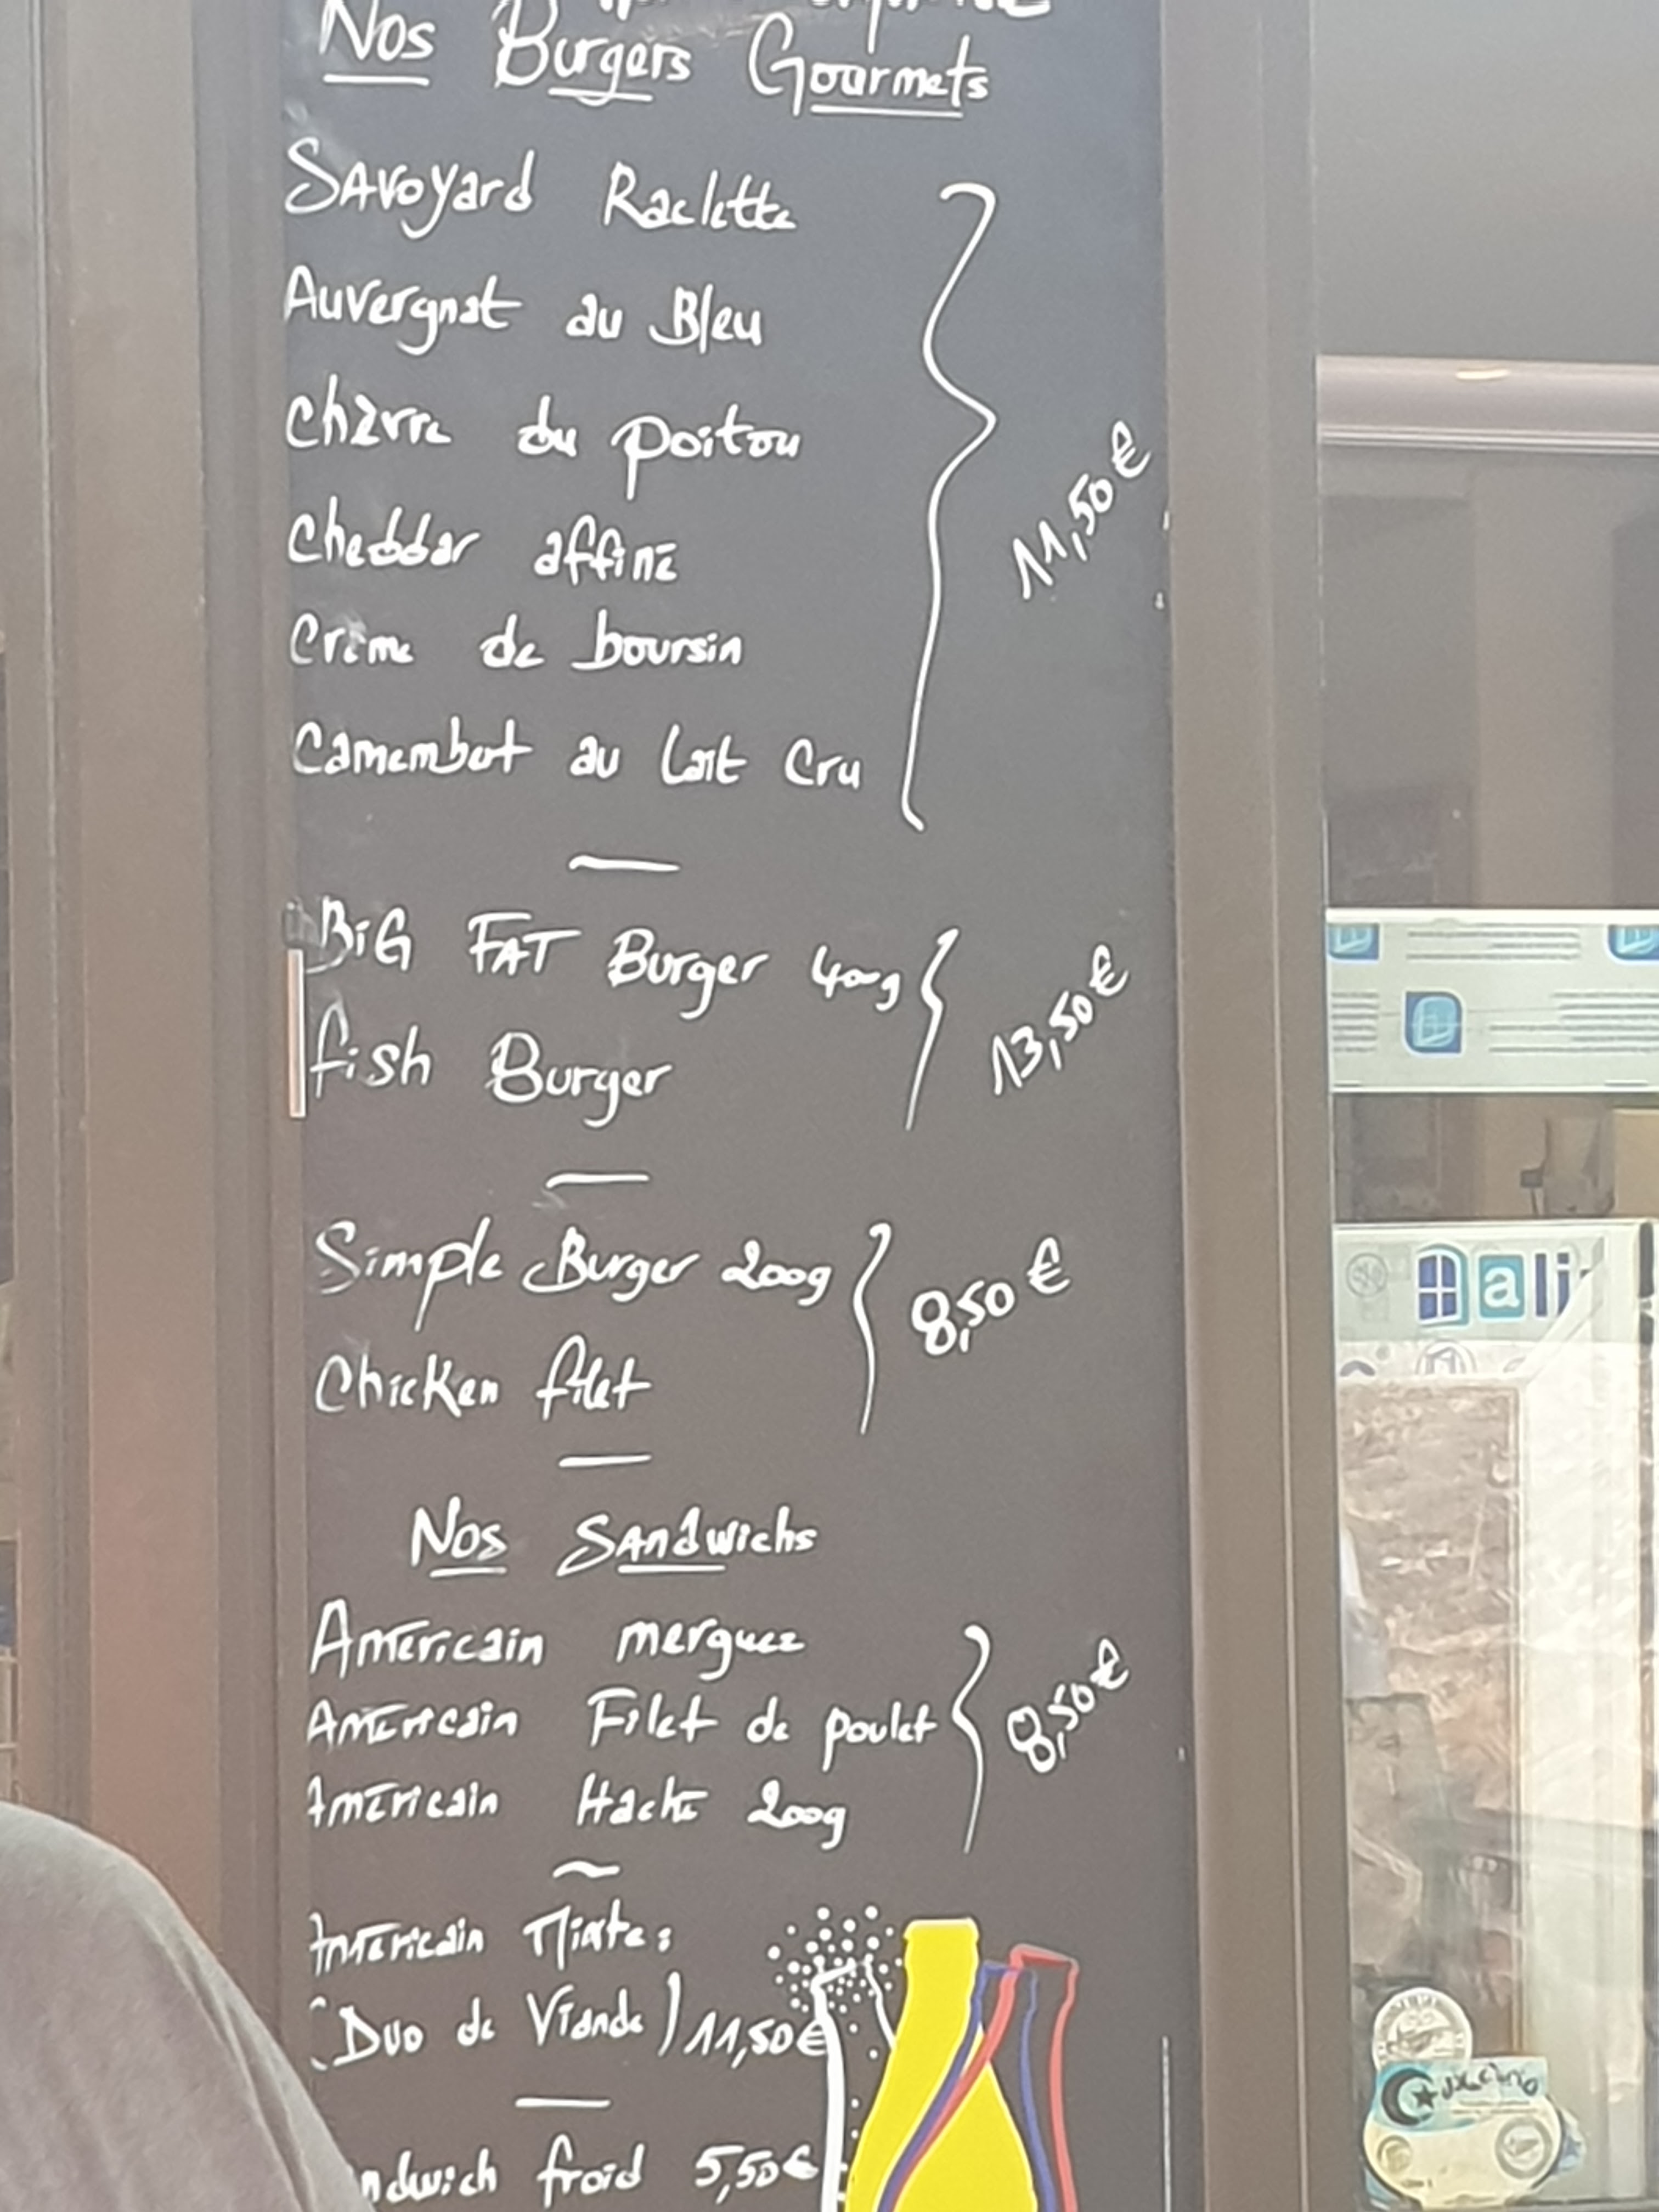 Nos Burgers Gourmets
Savoyard Raclette
Auvergnat au Bleu
Chèvre du poitou
Cheddar affiné
Crème de boursin
Camembert au lait Cru
11,50 €
BiG FAT Burger 400g
fish Burger
13,50 €
Simple Burger 200g
Chicken filet
8,50 €
Nos Sandwichs
Américain merguez
Américain Filet de poulet
Américain Haché 200g
8,50 €
Américain Mixte:
(Duo de Viande) 11,50 €
ndwich froid 5,50 €